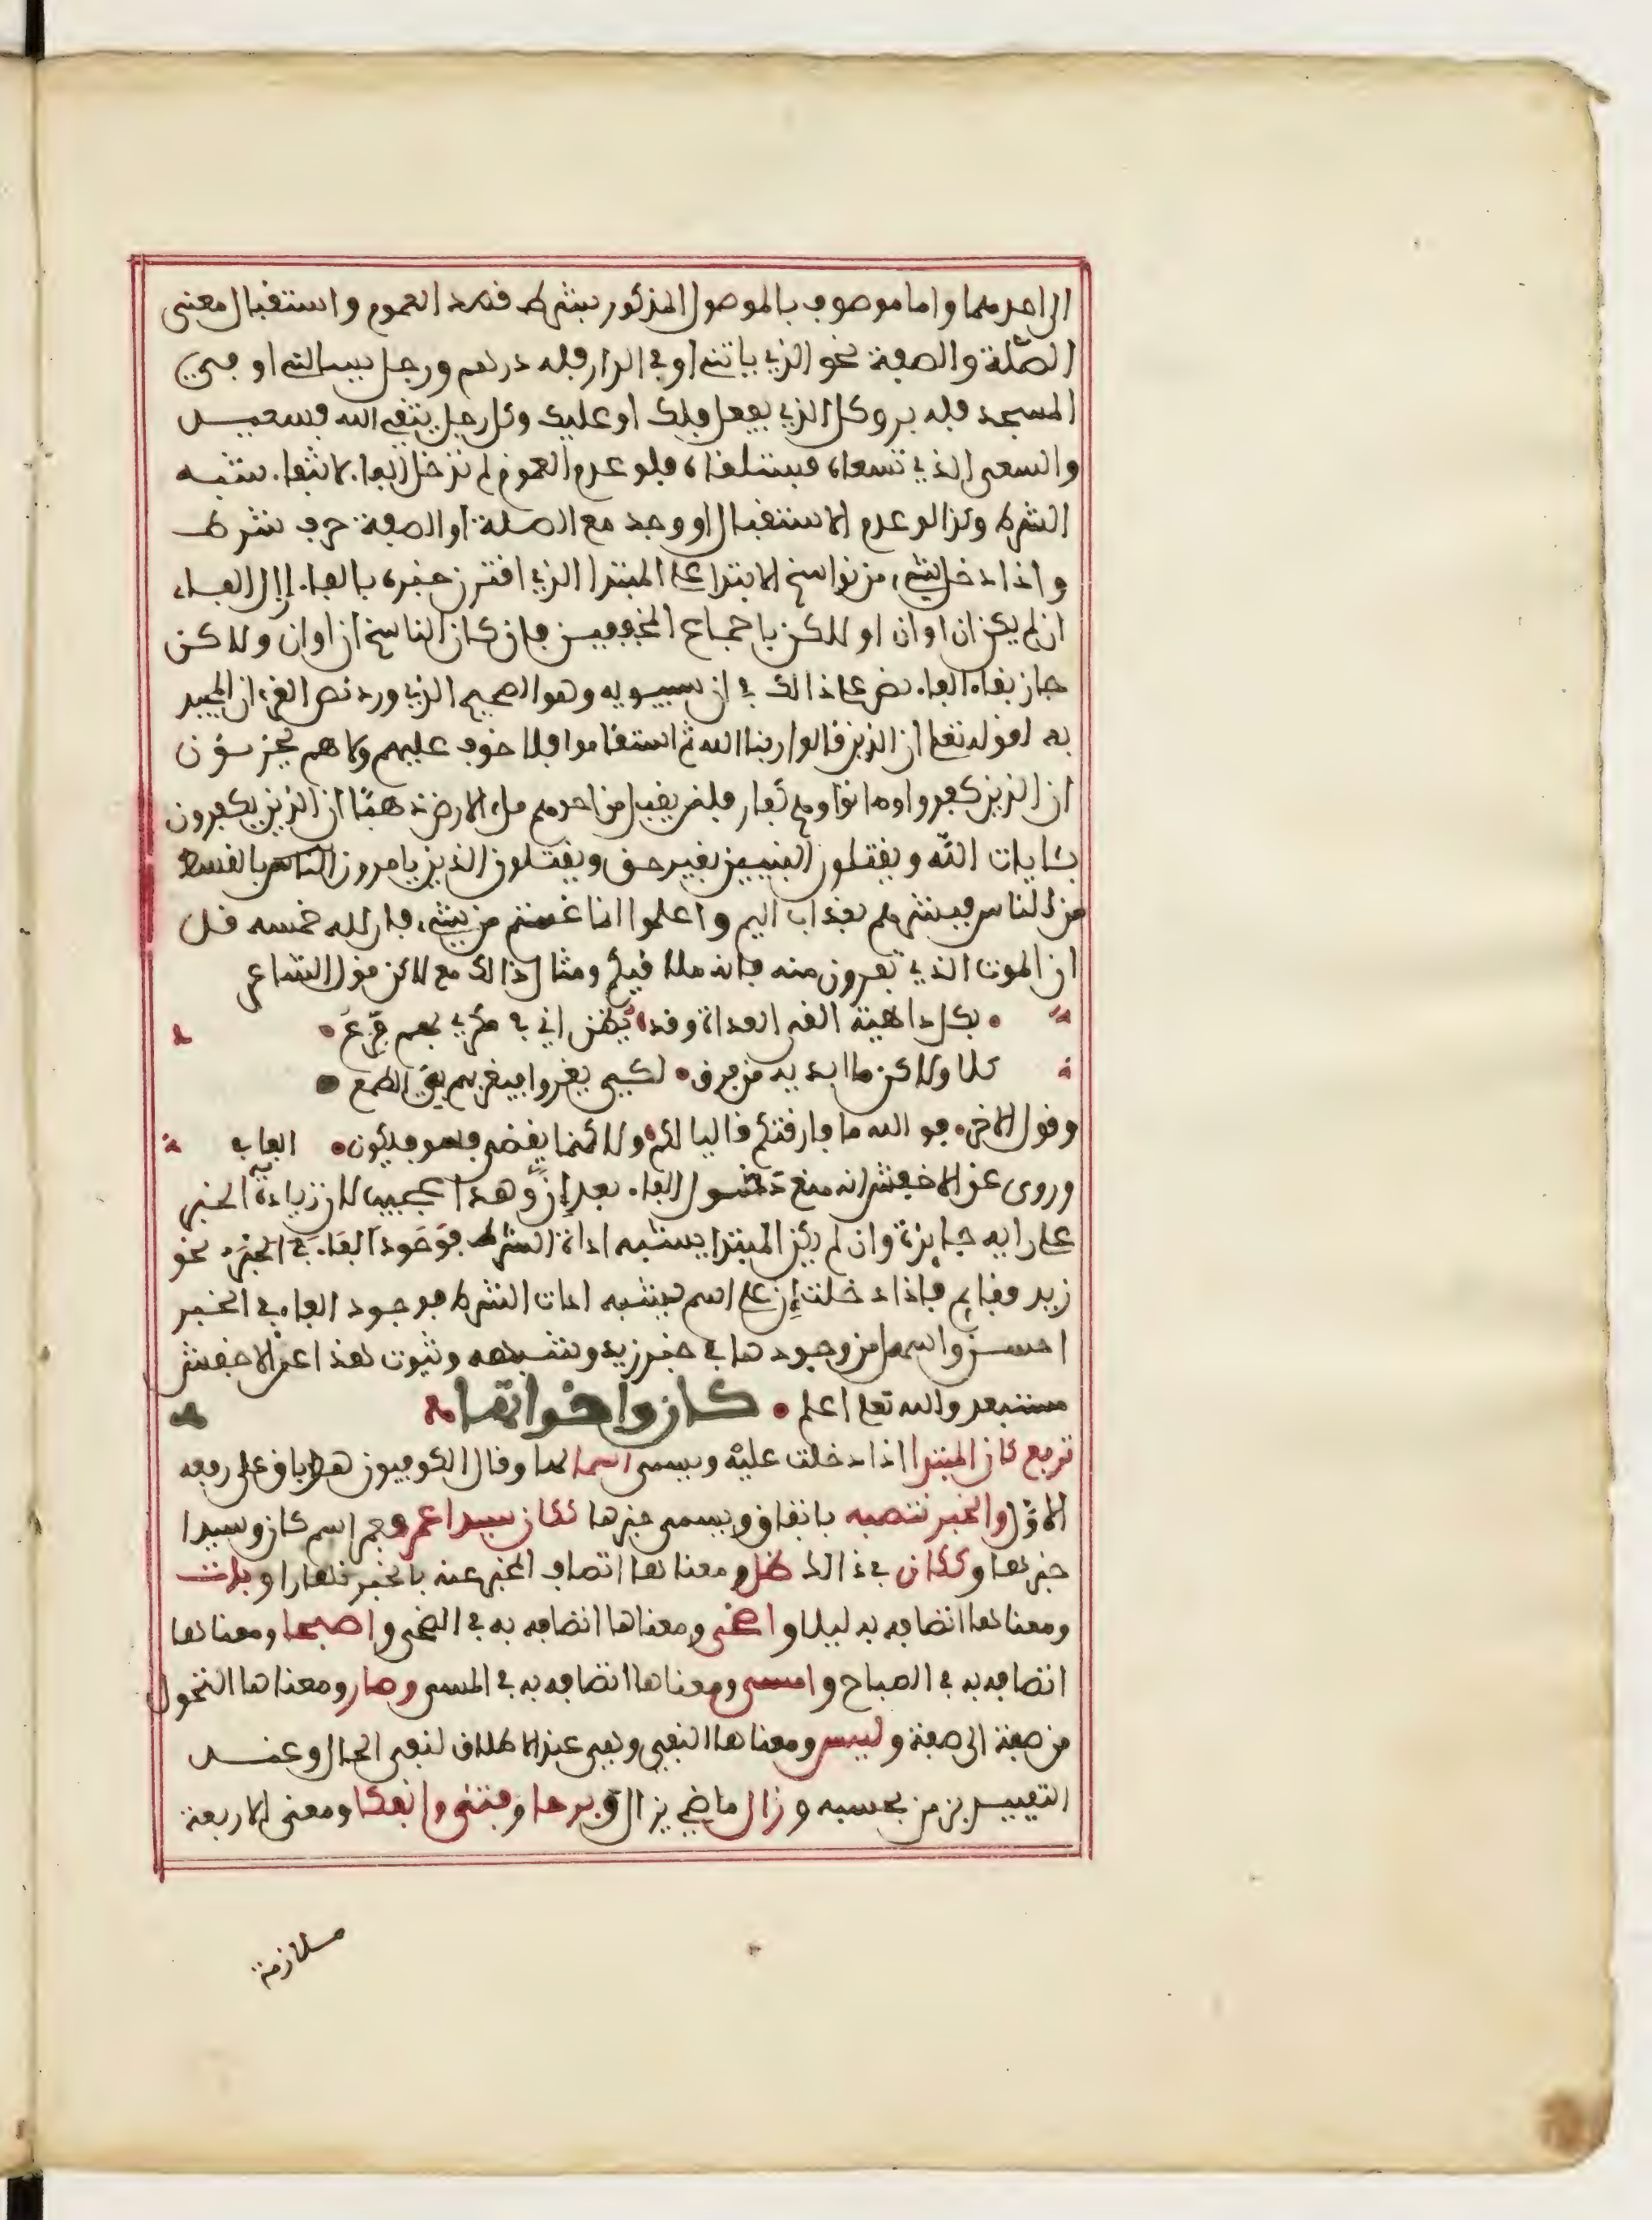 الى احدهما واما موصوف بالموصول المذكور بشرط قصد العموم واستقبال معنى
الصّلة والصفة نحو الذي ياتني او في الدار فله درهم ورجل يسالني او في
المسجد فله بر وكل الذي يفعل فلك او عليك وكل رجل يتقي الله فسعيد
والسعي الذي تسعاه فستلقاه فلو عدم العموم لم تدخل الفاء لانتفاء شبه
الشرط وكذا لو عدم الاستقبال او وجد مع الصلة او الصفة حرف شرط
واذا دخل شيء من نواسخ الابتدا على المبتدا الذي اقترن خبره بالفاء ازال الفاء
ان لم يكن ان او ان او لكن باجماع المحققين فان كان الناسخ ان او ان ولاكن
جاز بقاء الفاء نص على ذالك في ان سيبويه وهو الصحيح الذي ورد نص القرءان المجيد
به لقوله تعلى ان الذين قالوا ربنا الله ثم استقاموا فلا خوف عليهم ولا هم يحزنون
ان الذين كفروا وماتوا وهم كفار فلن يقبل من احدهم ملء الارض ذهبًا ان الذين يكفرون
بئايات الله ويقتلون النبيين بغير حق ويقتلون الذين يامرون الناس بالقسط
من الناس فبشرهم بعذاب اليم واعلموا انما غنمتم من شيء فان لله خمسه قل
ان الموت الذي تفرون منه فانه ملاقيكم ومثال ذالك مع لاكن قول الشاعر
بكل داهية القى العداة وقد يظن اني في مكري بهم فزع
كلا ولاكن ما ابديه من فرق لكي يغروا فيغريهم بي الطمع
وقول الاخر فو الله ما فارقتكم قاليا لكم ولاكنما يقضى فسوف يكون
وروى عن الاخفش انه منع دخول الفاء بعد إنّ وهذا عجيب لان زيادة الفاء في الخبر
على رايه جايزة وان لم يكن المبتدا يشبه اداة الشرط فوجود الفاء في الخبر نحو
زيد فقايم فاذا دخلت إن على اسم يشبه ادات الشرط فوجود الفاء في الخبر
احسن واسهل من وجودها في خبر زيد وشبهه وثبوت هذا عن الاخفش
مستبعد والله تعلى اعلم كان واخواتها
ترفع كان المبتدا اذا دخلت عليه ويسمى اسما لها وقال الكوفيون هو باق على رفعه
الاوّل والخبر تنصبه باتفاق ويسمى خبرها ككان سيدا عمر فعمر اسم كان وسيدا
خبرها وككان في ذالك ظل ومعناها اتصاف المخبر عنه بالخبر نهارا وبات
ومعناها اتصافه به ليلا واضحى ومعناها اتصافه به في الضحى واصبحا ومعناها
اتصافه به في الصباح وامسى ومعناها اتصافه به في المسى وصار ومعناها التحول
من صفة الى صفة وليس ومعناها النفي وهي عند الاطلاق لنفي الحال وعند
التقييد بزمن بحسبه وزال ماضي يزال وبرحا وفتئ وانفكا ومعنى الاربعة
ملازمة